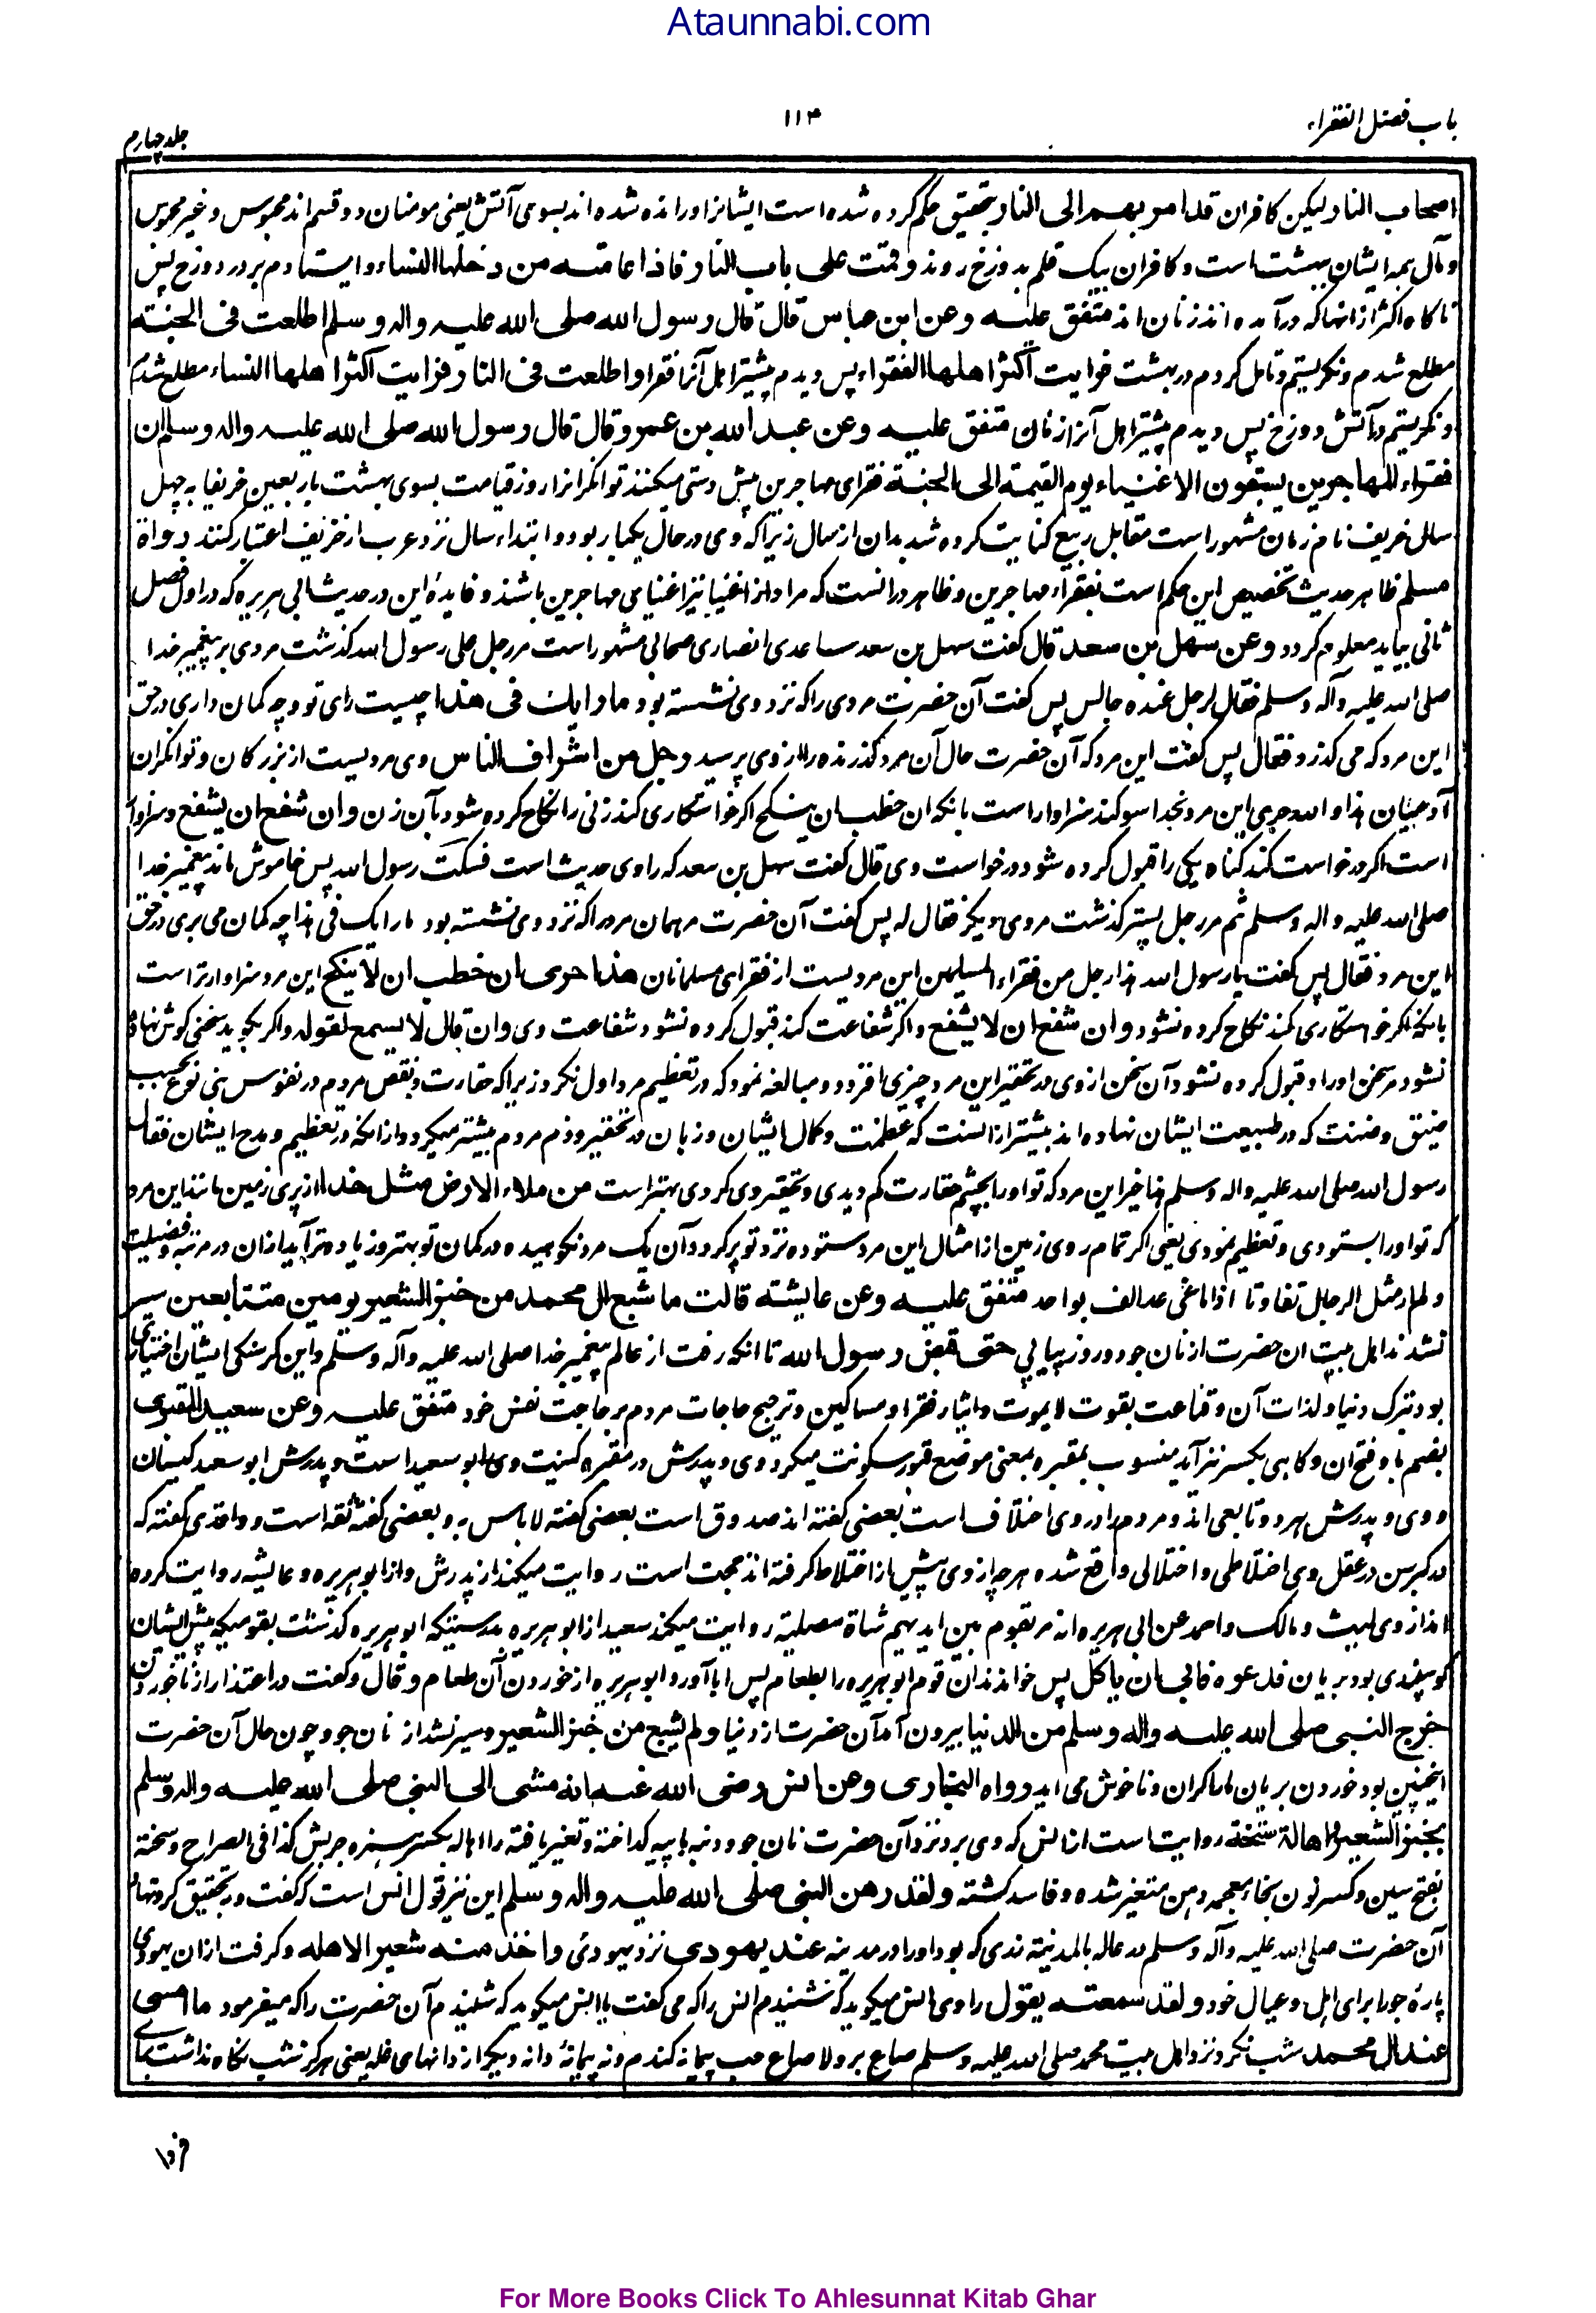 Ataunnabi.com
باب فضل الفقراء
۱۱۴
جلد چهارم
اصحاب النار لیکن کافران قد امر بهم الی النار بتحقیق حکم کرده شده است ایشانرا و رانده شده اند بسوی آتش یعنی مومنان دو قسم اند محبوس و غیر محبوس
و مآل همه ایشان بهشت است و کافران بیک قلم بدوزخ روند وقمت علی باب النار فاذا عامته من دخلها النساء و ایستادم بر در دوزخ پس
ناکاه اکثر از انها که در آمده اند زنان اند متفق علیه وعن ابن عباس قال قال رسول الله صلی الله علیه واله وسلم اطلعت فی الجنة
مطلع شدم و نکریستم و تامل کردم در بهشت فرایت اکثر اهلها الفقراء پس دیدم بیشتر اهل آنرا فقرا واطلعت فی النار فرایت اکثر اهلها النساء مطلع شدم
و نکریستم در آتش دوزخ پس دیدم بیشتر اهل آنرا زنان متفق علیه وعن عبد الله بن عمرو قال قال رسول الله صلی الله علیه واله وسلم ان
فقراء المهاجرین یسبقون الاغنیاء یوم القیمة الی الجنة فقرای مهاجرین پیش دستی میکنند توانکرانرا روز قیامت بسوی بهشت باربعین خریفا به چهل
سال خریف نام زمان مشهور است مقابل ربیع کنایت کرده شد بدان از سال زیرا که وی در سال یکبار بود و ابتداء سال نزد عرب از خریف اعتبار کنند رواه
مسلم ظاهر حدیث تخصیص این حکم است بفقراء مهاجرین و ظاهر در انست که مراد از اغنیا نیز اغنیای مهاجرین باشند و فایدۀ این در حدیث ابی هریره که در اول فصل
ثانی بیاید معلوم کردد وعن سهل بن سعد قال کفت سهل بن سعد ساعدی انصاری صحابی مشهور است مر رجل علی رسول الله کذشت مردی بر پیغمبر خدا
صلی الله علیه وآله وسلم فقال لرجل عنده جالس پس کفت آن حضرت مردی را که نزد وی نشسته بود ما رایك فی هذا چیست رای تو و چه کمان داری در حق
این مرد که می کذرد فقال پس کفت این مرد که آن حضرت حال آن مرد کذرنده را از وی پرسید رجل من اشراف الناس وی مردیست از بزرکان و توانکران
آدمیان هذا والله حری این مرد بخدا سوکند سزاوار است بانکه ان خطب ان ینکح اکر خواستکاری کند زنی را نکاح کرده شود بآن زن وان شفع ان یشفع و سزاوار
است اکر درخواست کند کناه یکی را قبول کرده شود درخواست وی قال کفت سهل بن سعد که راوی حدیث است فسکت رسول الله پس خاموش ماند پیغمبر خدا
صلی الله علیه واله وسلم ثم مر رجل پستر کذشت مردی دیکر فقال له پس کفت آن حضرت مرهمان مرد را که نزد وی نشسته بود ما رایک فی هذا چه کمان می بری در حق
این مرد فقال پس کفت یا رسول الله هذا رجل من فقراء المسلمین این مردیست از فقرای مسلمانان هذا حری ان خطب ان لا ینکح این مرد سزاوارتر است
بانکه اکر خواستکاری کند نکاح کرده نشود وان شفع ان لا یشفع و اکر شفاعت کند قبول کرده نشود شفاعت وی وان قال لا یسمع لقوله و اکر بکوید سخنی کوش نهاده
نشود مر سخن او را و قبول کرده نشود آن سخن از وی در تحقیر این مرد چیزی افزود و مبالغه نمود که در تعظیم مرد اول نکرد زیرا که حقارت و نقص مردم در نفوس بنی نوع بسبب
ضیق و ضنت که در طبیعت ایشان نهاده اند بیشتر از انست که عظمت و کمال ایشان و زبان در تحقیر و ذم مردم بیشتر میکردد از انکه در تعظیم و مدح ایشان فقال
رسول الله صلی الله علیه واله وسلم هذا خیر این مرد که تو او را بچشم حقارت کم دیدی و تحقیر وی کردی بهتر است من ملاء الارض مثل هذا از پری زمین مانند این مرد
که تو او را بستودی و تعظیم نمودی یعنی اکر تمام روی زمین از امثال این مرد ستوده نزد تو پر کردد آن یک مرد نکوهیده در کمان تو بهتر و زیاده تر آید از ان در مرتبه و فضیلت
ولم ار مثل الرجال تفاوتا اذا ما غی عد الف بواحد متفق علیه وعن عایشة قالت ما شبع ال محمد من خبز الشعیر یومین متتابعین سیر
نشدند اهل بیت ان حضرت از نان جو دو روز پیاپی حتی قبض رسول الله تا انکه رفت از عالم پیغمبر خدا صلی الله علیه وآله وسلم و این کرسنکی ایشان اختیاری
بود بترک دنیا و لذات آن و قناعت بقوت لایموت و ایثار فقرا و مساکین و ترجیح حاجات مردم بر حاجت نفس خود متفق علیه وعن سعید المقبری
بضم با و فتح ان و کاهی بکسر نیز آید منسوب بمقبره بمعنی موضع قبور سکونت میکرد وی و پدرش در مقبره کنیت وی ابو سعید است و پدرش ابو سعید کیسان
و وی و پدرش هر دو تابعی اند و مردم را در وی اختلاف است بعضی کفته اند صدوق است بعضی کفته لا باس به و بعضی کفته ثقه است و واقدی کفته که
در کبر سن در عقل وی اختلاطی و اختلالی واقع شده هر چه از وی پیش از اختلاط کرفته اند حجت است روایت میکند از پدرش و از ابو هریره و عایشه روایت کرده
اند از وی لیث و مالک و احمد عن ابی هریره انه مر بقوم بین ایدیهم شاة مصلیة روایت میکند سعید از ابو هریره بدرستیکه ابو هریره کذشت بقومیکه پیش ایشان
کوسپندی بود بریان فدعوه فابی ان یاکل پس خواندند ان قوم ابو هریره را بطعام پس ابا آورد ابو هریره از خوردن آن طعام وقال و کفت در اعتذار از ناخوردن
خرج النبی صلی الله علیه واله وسلم من الدنیا بیرون آمد آن حضرت از دنیا ولم یشبع من خبز الشعیر و سیر نشد از نان جو و چون حال آن حضرت
اینچنین بود خوردن بریان ما را کران و ناخوش می اید رواه البخاری وعن انس رضی الله عنه انه مشی الی النبی صلی الله علیه واله وسلم
بخبز الشعیر واهالة سنخة روایت است از انس که وی برد نزد آن حضرت نان جو و دنبه یا پیه کداخته و تغیر یافته را اهاله بکسر همزه چربش کذا فی الصراح وسنخة
بفتح سین و کسر نون بخاء معجمه دهن متغیر شده و فاسد کشته ولقد رهن النبی صلی الله علیه واله وسلم این نیز قول انس است که کفت و بتحقیق کرو نهاد
آن حضرت صلی الله علیه وآله وسلم درعا له بالمدینة زرهی که بود او را در مدینه عند یهودی نزد یهودئ واخذ منه شعیرا لاهله و کرفت از ان یهودی
پارۀ جو را برای اهل و عیال خود ولقد سمعته یقول راوی انس میکوید که شنیدم انس را که می کفت یا انس میکوید که شنیدم آن حضرت را که میفرمود ما امسی
عند ال محمد شب نکرد نزد اهل بیت محمد صلی الله علیه وسلم صاع بر ولا صاع حب پیمانه کندم و نه پیمانۀ دانه دیکر از دانهای غله یعنی هرکز شب نکاه نداشت برای
For More Books Click To Ahlesunnat Kitab Ghar